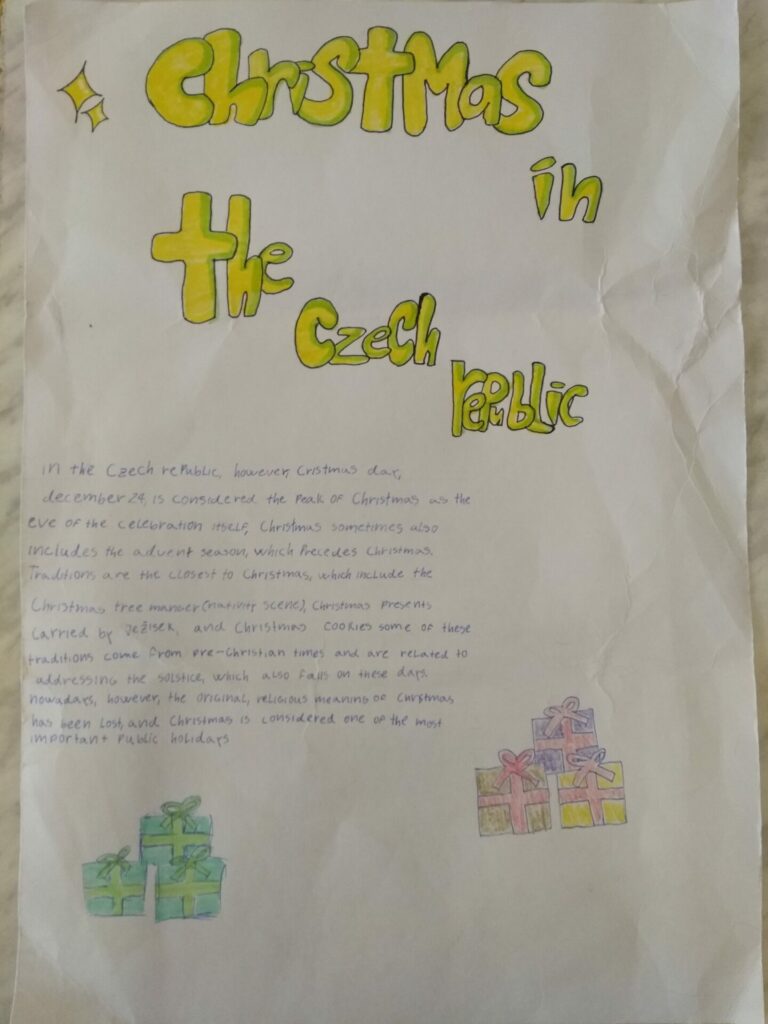 Christmas
in
the
Czech
republic
in the Czech republic, however, Cristmas day,
december 24, is considered the peak of Christmas as the
eve of the celebration itself, Christmas sometimes also
includes the advent season, which precedes Christmas.
Traditions are the closest to Christmas, which include the
Christmas tree manger (nativity scene), Christmas presents
carried by Ježisek, and Christmas cookies some of these
traditions come from pre-Christian times and are related to
addressing the solstice, which also falls on these days.
nowadays, however, the original, religious meaning of Christmas
has been lost, and Christmas is considered one of the most
important public holidays